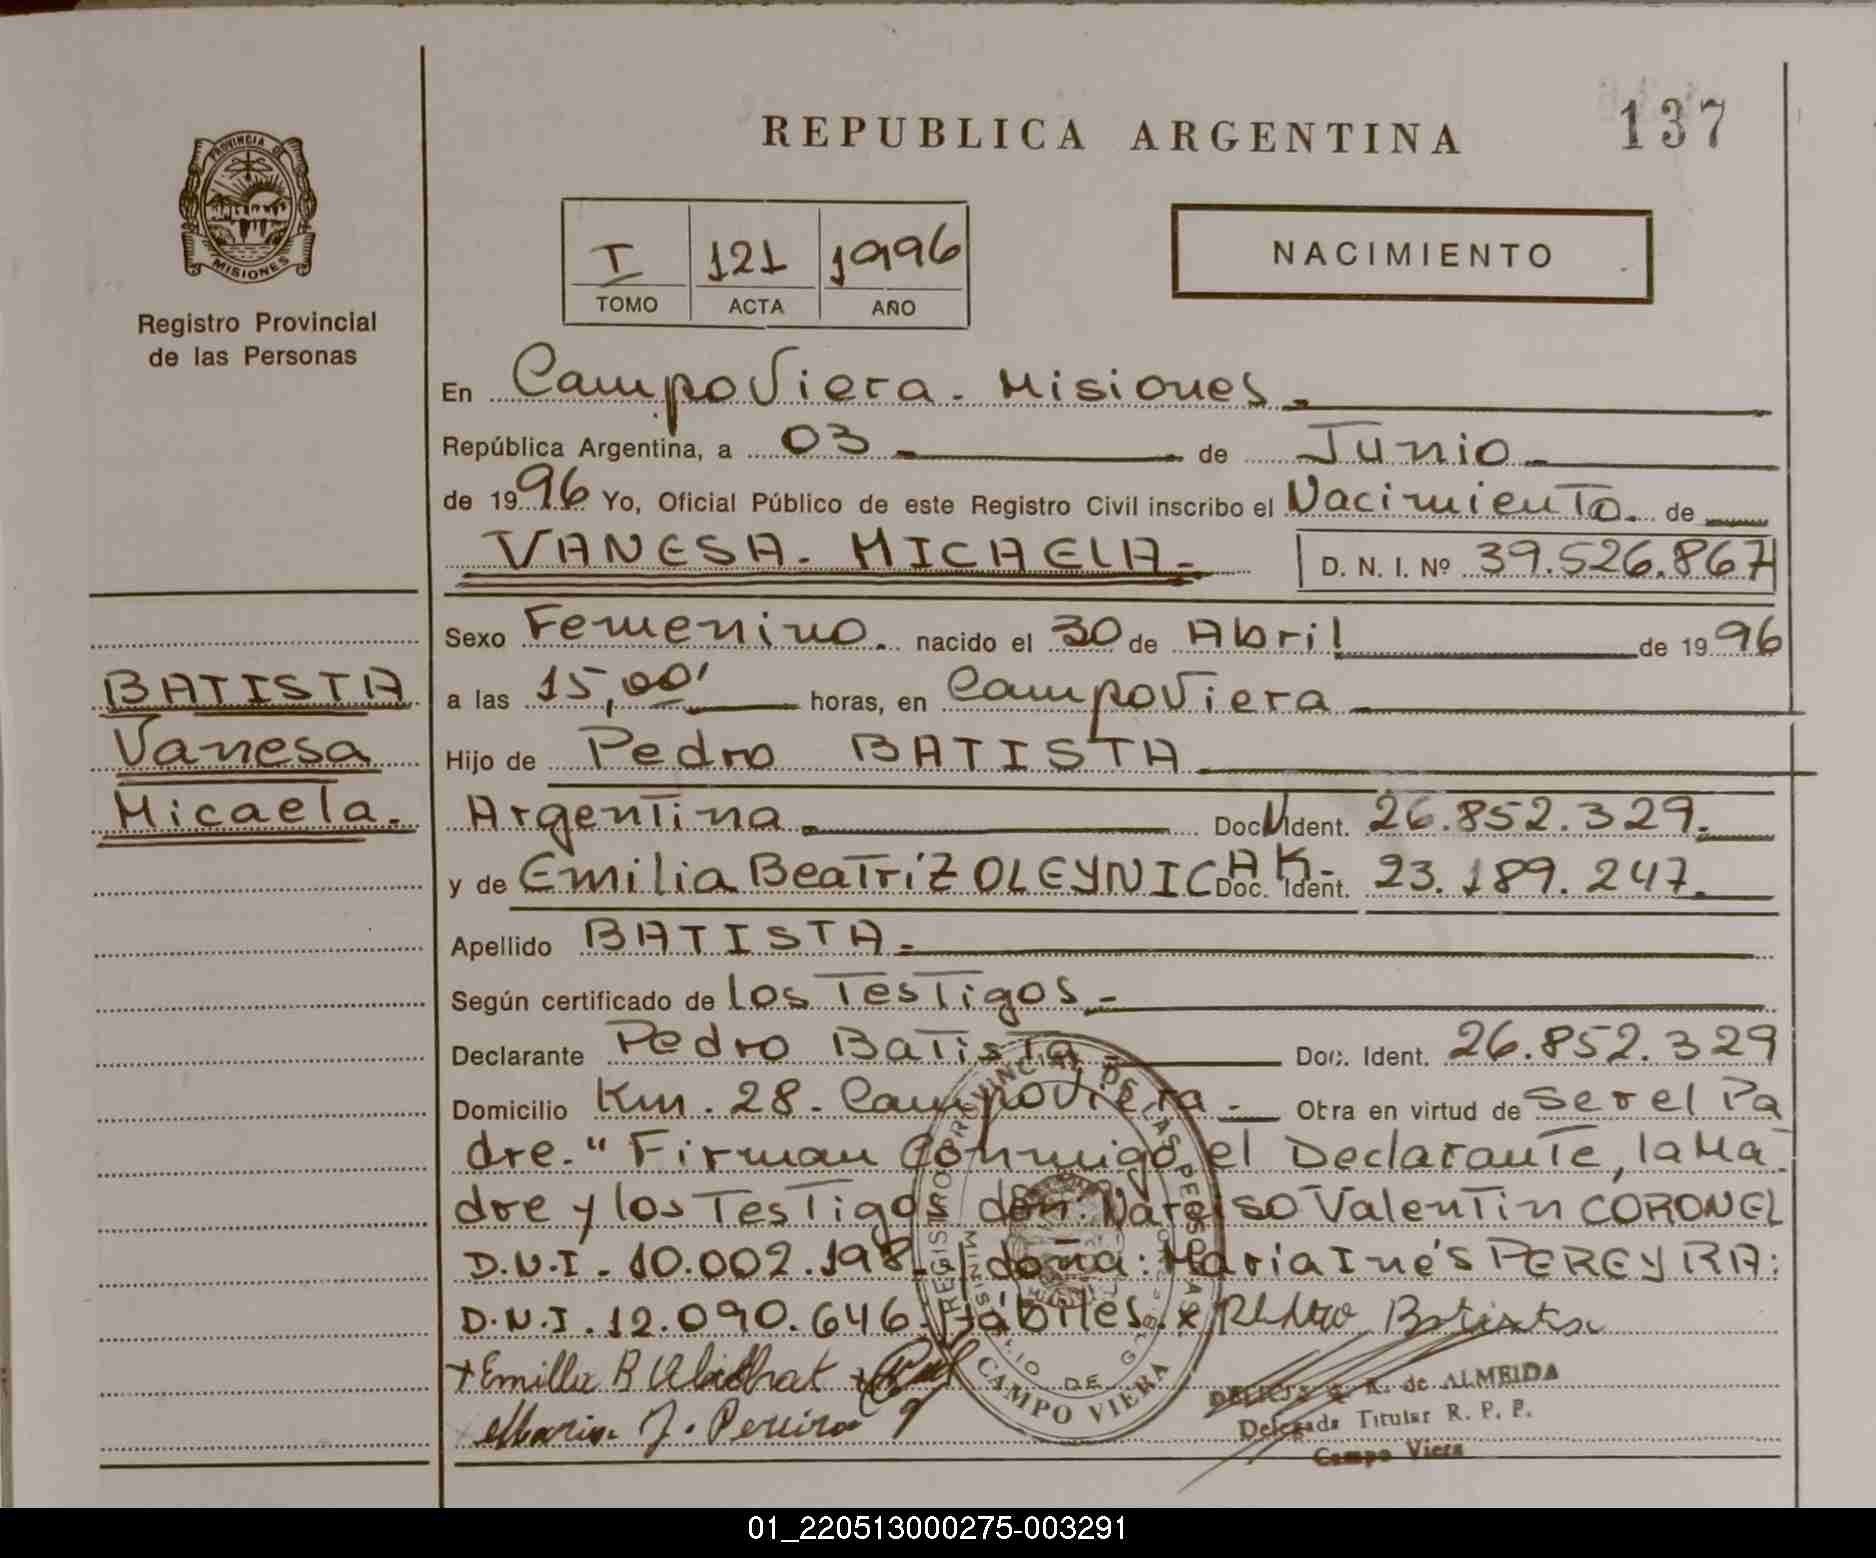 REPUBLICA ARGENTINA
137
PROVINCIA DE
MISIONES
Registro Provincial
de las Personas
I 121 1996
TOMO ACTA AÑO
NACIMIENTO
En Campo Viera - Misiones.
República Argentina, a 03 de Junio
de 1996 Yo, Oficial Público de este Registro Civil inscribo el Nacimiento. de
VANESA. MICAELA.
D. N. I. Nº 39.526.867
Sexo Femenino. nacido el 30 de Abril de 1996
a las 15,00' horas, en Campo Viera
Hijo de Pedro BATISTA
Argentina Doc. Ident. 26.852.329.
y de Emilia Beatríz OLEYNICHAK - Doc. Ident. 23.189.247.
Apellido BATISTA.
Según certificado de los Testigos -
Declarante Pedro Batista Doc. Ident. 26.852.329
Domicilio Km. 28 - Campo Viera - Otra en virtud de ser el Pa
dre. " Firman Conmigo el Declarante, la Ma-
dre y los Testigos don: Narciso Valentin CORONEL
D.N.I - 10.002.198 - y doña: Maria Inés PEREYRA:
D.N.I. 12.090.646. Hábiles. x Batista
+ Emilia B
Maria J. Pereira
BATISTA
Vanesa
Micaela.
REGISTRO PROVINCIAL DE LAS PERSONAS
MINISTERIO DE
CAMPO VIERA
de ALMEIDA
Delegada Titular R. P. P.
Campo Viera
01_220513000275-003291